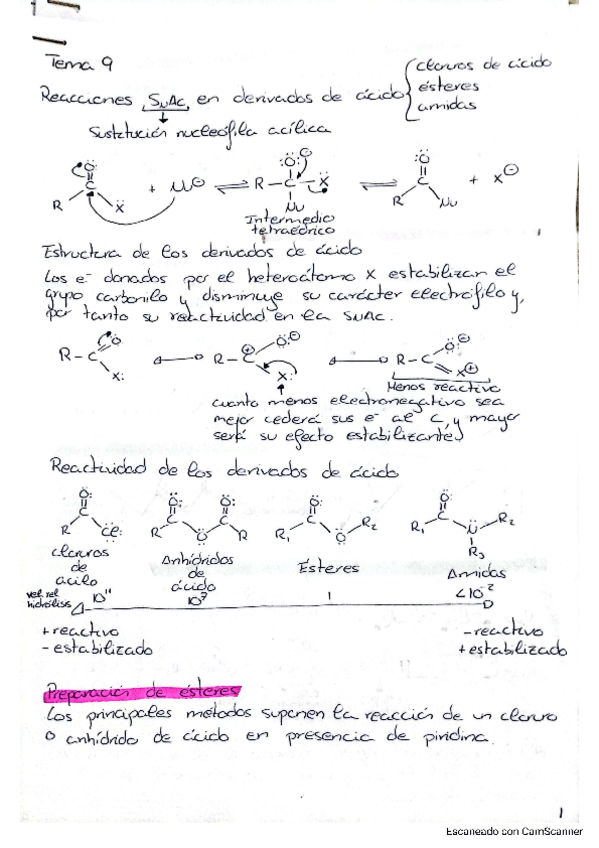 Tema 9
Reacciones SNAc en derivados de ácido { cloruros de ácido
ésteres
amidas
Sustitución nucleófila acílica
R X + Nu⊖ ⇌ R - C - X ⇌ R Nu + X⊖
Intermedio
tetraédrico
Estructura de los derivados de ácido
Los e⁻ donados por el heteroátomo X estabilizan el
grupo carbonilo y disminuye su carácter electrófilo y,
por tanto su reactividad en la SNAc.
R - C X: ↔ R - C X: ↔ R - C X⊕
Menos reactivo
cuanto menos electronegativo sea
mejor cederá sus e⁻ al C, y mayor
será su efecto estabilizante
Reactividad de los derivados de ácido
R C O Cl: R C O C R R₁ C O R₂ R₁ C N R₂
R₃
cloruros
de
acilo
Anhídridos
de
ácido
Ésteres
Amidas
vel. rel
hidrólisis 10¹¹ 10⁷ 1 <10⁻²
+ reactivo - reactivo
- estabilizado + estabilizado
Preparación de ésteres
Los principales métodos suponen la reacción de un cloruro
o anhídrido de ácido en presencia de piridina.
1
Escaneado con CamScanner